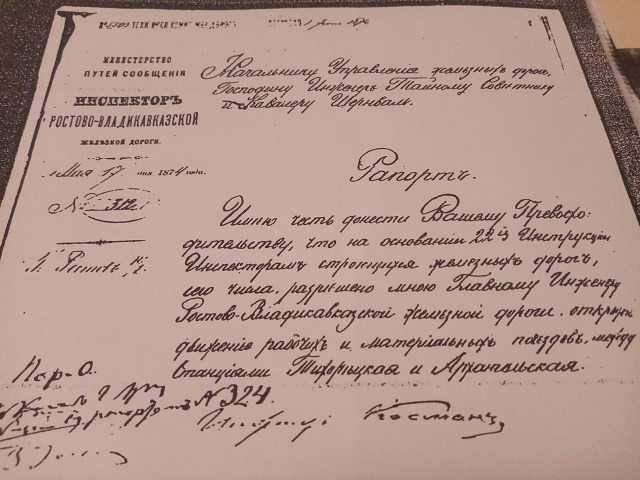 МИНИСТЕРСТВО
ПУТЕЙ СООБЩЕНІЯ
ИНСПЕКТОРЪ
РОСТОВО-ВЛАДИКАВКАЗСКОЙ
ЖЕЛѢЗНОЙ ДОРОГИ.
Мая 17 дня 1874 года
№ 312
Г. Ростовъ н/Д
Начальнику Управленія желѣзныхъ дорогъ,
Господину Инженеръ Тайному Совѣтнику
и Кавалеру Шернваль.
Рапортъ.
Имѣю честь донести Вашему Превосхо-
дительству, что на основаніи 22 § Инструкціи
Инспекторамъ строющихся желѣзныхъ дорогъ,
сего числа, разрѣшено мною Главному Инженеру
Ростово-Владикавказской желѣзной дороги, открыть
движеніе рабочихъ и матеріальныхъ поѣздовъ, между
Станціями Тихорѣцкая и Архангельская.
рапортомъ № 324.